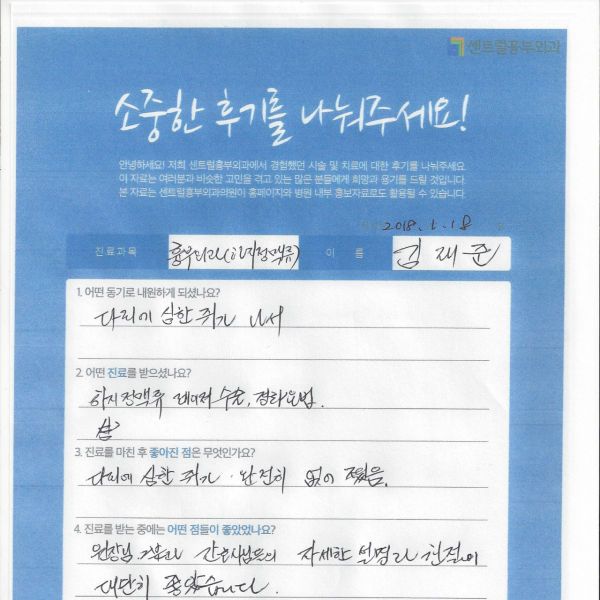 센트럴흉부외과
소중한 후기를 나눠주세요!
안녕하세요! 저희 센트럴흉부외과에서 경험했던 시술 및 치료에 대한 후기를 나눠주세요
이 자료는 여러분과 비슷한 고민을 겪고 있는 많은 분들에게 희망과 용기를 드릴 것입니다
본 자료는 센트럴흉부외과의원이 홈페이지와 병원 내부 홍보자료로도 활용될 수 있습니다
2018. 1. 18
진료과목 흉부외과(하지정맥류) 이 름 김재준
1. 어떤 동기로 내원하게 되셨나요?
다리에 심한 쥐가 나서
2. 어떤 진료를 받으셨나요?
하지정맥류 레이저 수술, 경화요법.
3. 진료를 마친 후 좋아진 점은 무엇인가요?
다리에 심한 쥐가 완전히 없어졌음.
4. 진료를 받는 중에는 어떤 점들이 좋았었나요?
원장님 간호사님들의 자세한 설명과 친절이
대단히 좋았습니다.